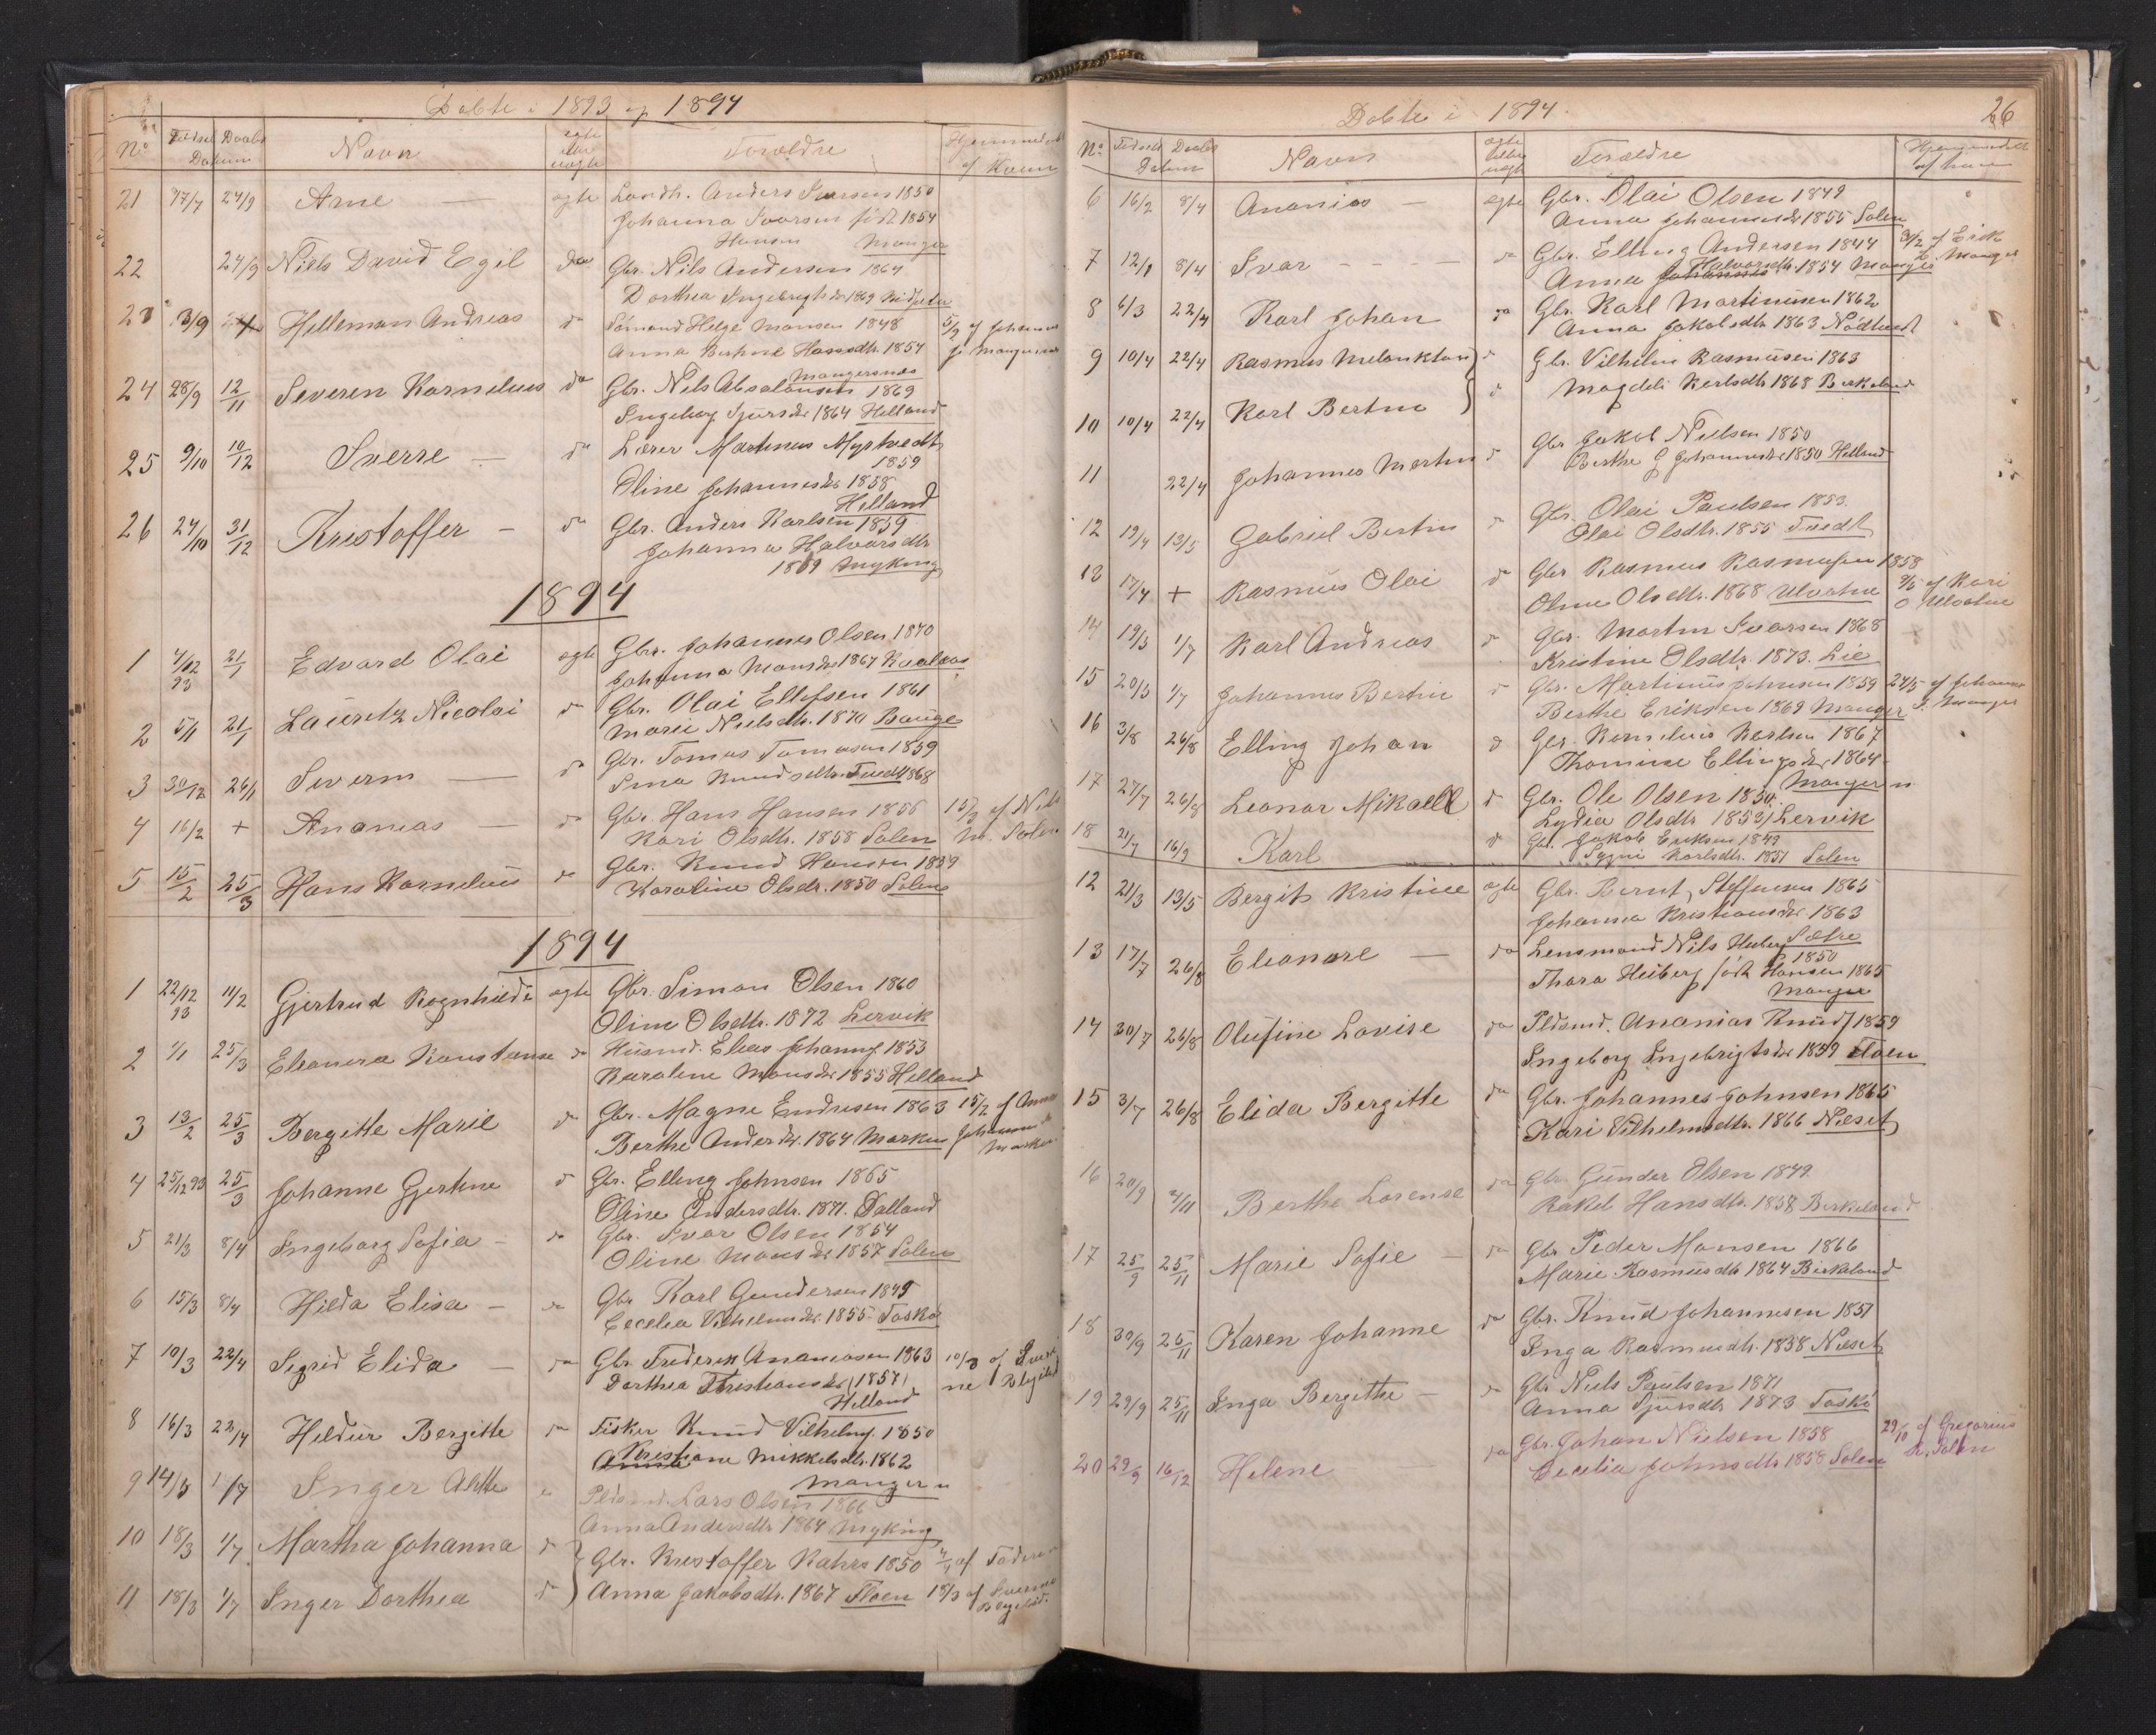 Døbte i 1893 og 1894
No Fødsel Daabs Datum Navn ægte eller uægte Forældre Hjemmedøbt af hvem
21 17/7 24/9 Arne — ægte Landh. Anders Ivarsen 1850
Johanna Ivarsen født 1854
Hansen Manger
22 24/9 Niels David Egil do Gbr. Nils Andersen 1864
Dorthea Ingebregtsdr 1869
23 3/9 Helleman Andreas do Sømand Helge Monsen 1848 5/9 af Johannes
Anna Berthine Hansdtr. 1854
Mangersnæs
24 28/9 12/11 Severen Kornelius do Gbr. Nils Absalonsen 1869
Ingeborg Sjursdr 1864 Helland
25 9/10 10/12 Sverre — do Lærer Martinus Myrtvedt
1859
Oline Johannesdr 1858
Helland
26 24/10 31/12 Kristoffer — do Gbr. Anders Karlsen 1859
Johanna Halvorsdtr
1869 Myking
1894
1 4/12 93 21/1 Edvard Olai ægte Gbr. Johannes Olsen 1840
Johanna Monsdr 1867
2 5/1 21/1 Lauritz Nicolai do Gbr. Olai Ellefsen 1861
Marie Nielsdtr. 1870 Bauge
3 30/12 26/1 Severin — do Gbr. Tomas Tomasen 1859
Sina Knudsdtr. Tvedt 1868
4 16/2 + Ananias — do Gbr. Hans Hansen 1856 15/3 af Nils
Kari Olsdtr. 1858 Solem M. Solem
5 15/2 25/3 Hans Kornelius do Gbr. Knud Hansen 1859
Karoline Olsdr. 1850 Solem
1894
1 22/12 93 11/2 Gjertrud Rognhilde ægte Gbr. Simon Olsen 1860
Oline Olsdtr. 1872 Lervik
2 1/1 25/3 Eleonora Konstanse do Husmd. Elias Johannes. 1853
Karolene Monsdr 1855 Helland
3 13/2 25/3 Bergitte Marie do Gbr. Magne Endresen 1863 15/2 af Anna
Berthe Andersdr. 1864 Marken Johannesdr
Marken
4 25/12 93 25/3 Johanne Gjertine do Gbr. Elling Johnsen 1865
Oline Andersdtr. 1871. Dalland
5 21/3 8/4 Ingeborg Sofia — do Gbr. Ivar Olsen 1854
Oline Monsdr 1857 Solem
6 15/3 8/4 Hilda Elisa — do Gbr. Karl Gundersen 1845
Cecelia Vilhelmsdr. 1855. Toskø
7 10/3 22/4 Sigrid Elida — do Gbr Frederik Ananiasen 1863 10/3 af
Dorthea Kristiansdr (1857)
Helland
8 16/3 22/4 Hildur Bergitte do Fisker Knud Vilhelms. 1850
Kristiane Mikkelsdtr. 1862
Manger n
9 14/3 1/7 Inger do Pldsmd. Lars Olsen 1866
Anna Andersdtr 1864 Myking
10 18/3 1/7 Martha Johanna do Gbr. Kristoffer Rahrs 1850 af Faderen
11 18/3 1/7 Inger Dorthea do Anna Jakobsdtr. 1867 Floen 18/3 af
Døbte i 1894. 26
No Fødsels Daabs Datum Navn ægte eller uægte Forældre Hjemmedøbt af hvem
6 16/2 8/4 Ananias — ægte Gbr. Olai Olsen 1849
Anna Johannesdr 1855 Solem
7 12/1 8/4 Ivar - - - - do Gbr. Elling Andersen 1844 af Erik
Anna Halvorsdtr. 1854 Manger Manger
8 6/3 22/4 Karl Johan do Gbr. Karl Martinusen 1862
Anna Jakobsdtr 1863 Nødtvedt
9 10/4 22/4 Rasmus Melankton do Gbr. Vilhelm Rasmusen 1863
10 10/4 22/4 Karl Bertin do Magdeli Karlsdtr 1868 Birkeland
11 22/4 Johannes Martin do Gbr Jakob Nielsen 1850
Berthe G Johannesdr 1850 Helland
12 19/4 13/5 Gabriel Bertin do Gbr. Olai Paulsen 1853.
Olai Olsdtr. 1855 Tvedt
13 17/4 + Rasmus Olai do Gbr Rasmus Rasmusen 1858
Oline Olsdtr. 1868 Ulvatne 9/5 af Kari
O Ulvatne
14 19/5 1/7 Karl Andreas do Gbr. Martin Ivarsen 1868
Kristine Olsdtr. 1873. Lie
15 20/5 1/7 Johannes Bertin do Gbr. Martinus Johnsen 1859 24/5 af Johannes
Berthe Eriksen 1869 Manger J. Manger
16 3/8 26/8 Elling Johan do Gbr. Kornelius Karlsen 1867
Thomine Ellingsdr 1864
Manger n
17 27/7 26/8 Leonar Mikaell do Gbr. Ole Olsen 1850.
Lydia Olsdtr 1853 Lervik
18 21/7 16/9 Karl do Gbr. Jakob Eriksen 1849
Sygni Karlsdtr. 1851 Solem
12 21/3 13/5 Bergit Kristine ægte Gbr. Bernt Steffensen 1865
Johanna Kristiansdr 1863
Sætre
13 17/7 26/8 Eleonore — do Lensmand Nils Heiberg 1850
Thora Heiberg født Hansen 1865
Manger
14 30/7 26/8 Olufine Lovise do Pldsmd. Ananias Knuds 1859
Ingeborg Ingebrigtsdr 1859 Floen
15 3/7 26/8 Elida Bergitte do Gbr. Johannes Johnsen 1865
Kari Vilhelmsdtr. 1866 Nileset
16 20/9 4/11 Berthe Lorense do Gbr. Gunder Olsen 1849.
Rakel Hansdtr. 1858 Birkeland
17 25/9 25/11 Marie Sofie — do Gbr Peder Monsen 1866
Marie Rasmusdtr 1864 Birkeland
18 30/9 25/11 Karen Johanne do Gbr. Knud Johannesen 1851
Inga Rasmusdtr. 1858 Nileset
19 29/9 25/11 Inga Bergitte — do Gbr Niels Paulsen 1871
Anna Sjursdtr 1873 Toskø
20 29/9 16/12 Helene do Gbr. Johan Nielsen 1858 29/10 af Gregorius
Cecelia Johnsdtr 1858 Solem H. Solem